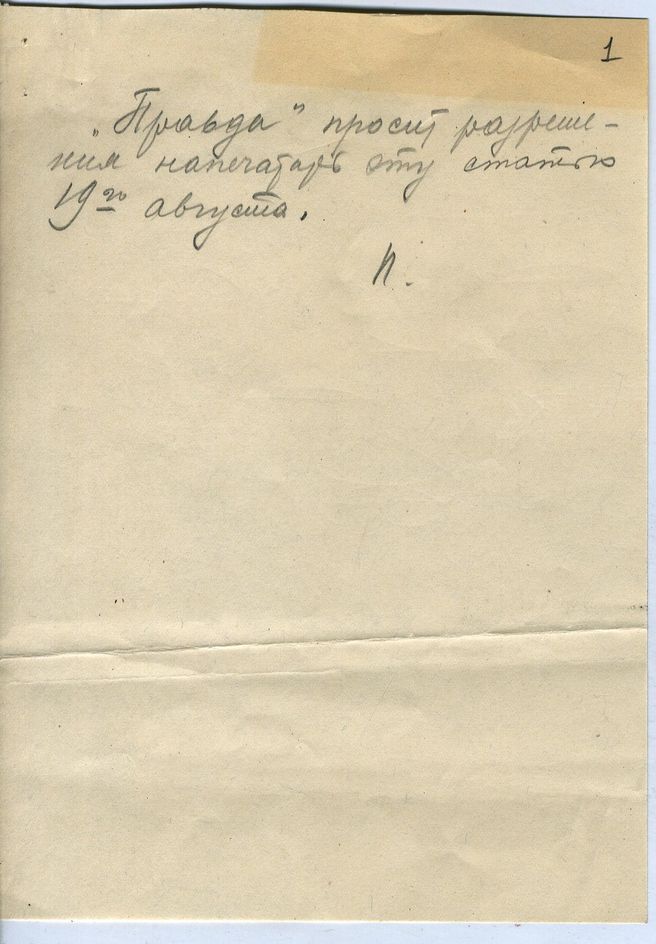 1
„Правда" просит разреше-
ния напечатать эту статью
19го августа.
П.